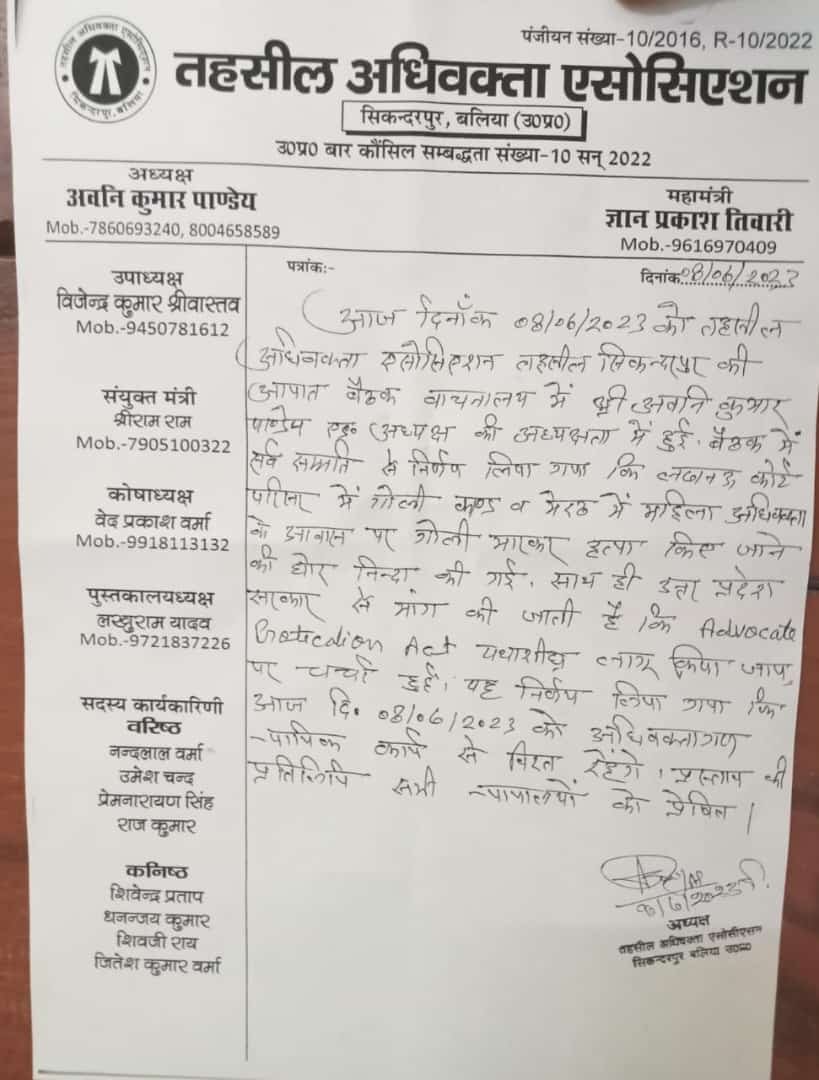 पंजीयन संख्या-10/2016, R-10/2022
तहसील अधिवक्ता एसोसिएशन
सिकन्दरपुर, बलिया
तहसील अधिवक्ता एसोसिएशन
सिकन्दरपुर, बलिया (उ०प्र०)
उ०प्र० बार कौंसिल सम्बद्धता संख्या-10 सन् 2022
अध्यक्ष
अवनि कुमार पाण्डेय
Mob.-7860693240, 8004658589
महामंत्री
ज्ञान प्रकाश तिवारी
Mob.-9616970409
पत्रांकः-
दिनांक 08/06/2023
उपाध्यक्ष
विजेन्द्र कुमार श्रीवास्तव
Mob.-9450781612
संयुक्त मंत्री
श्रीराम राम
Mob.-7905100322
कोषाध्यक्ष
वेद प्रकाश वर्मा
Mob.-9918113132
पुस्तकालयध्यक्ष
लखुराम यादव
Mob.-9721837226
सदस्य कार्यकारिणी
वरिष्ठ
नन्दलाल वर्मा
उमेश चन्द
प्रेमनारायण सिंह
राज कुमार
कनिष्ठ
शिवेन्द्र प्रताप
धनन्जय कुमार
शिवजी राय
जितेश कुमार वर्मा
आज दिनाँक 08/06/2023 को तहसील
अधिवक्ता एसोसिएशन तहसील सिकन्दरपुर की
आपात बैठक वाचनालय में श्री अवनि कुमार
पाण्डेय एड० अध्यक्ष की अध्यक्षता में हुई, बैठक में
सर्व सम्मति से निर्णय लिया गया कि लखनऊ कोर्ट
परिसर में गोली काण्ड व मेरठ में महिला अधिवक्ता
के आवास पर गोली मारकर हत्या किए जाने
की घोर निन्दा की गई, साथ ही उत्तर प्रदेश
सरकार से मांग की जाती है कि Advocate
Protection Act यथाशीघ्र लागू किया जाय,
पर चर्चा हुई, यह निर्णय लिया गया कि
आज दि० 08/06/2023 को अधिवक्तागण
न्यायिक कार्य से विरत रहेंगे, प्रस्ताव की
प्रतिलिपि सभी न्यायालयों को प्रेषित।
अध्यक्ष
तहसील अधिवक्ता एसोसीएसन
सिकन्दरपुर बलिया उ०प्र०